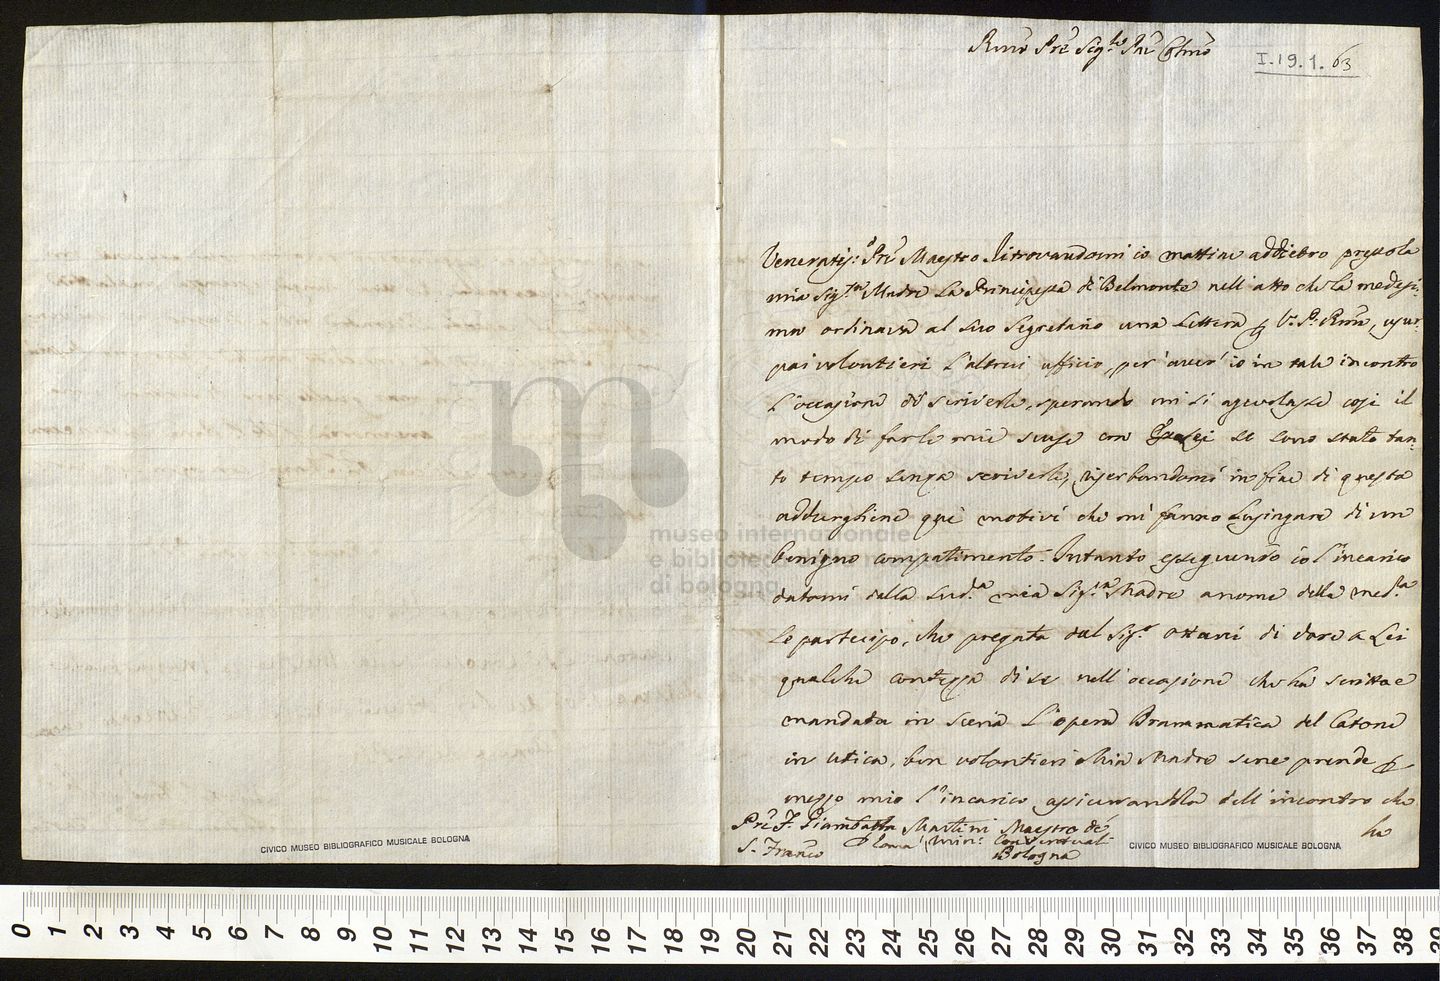 Rmo Pre Sig.re Pne Colmo
I.19.1.63
Veneratis:o Pre Maestro Ritrovandomi io mattine addietro presso la
mia Sig.ra Madre la Principessa di Belmonte nell'atto che la medesi:
ma ordinava al suo Segretario una Lettera p V.a P. Rma, usur:
pai volontieri l'altrui ufficio, per aver' io in tale incontro
l'occasione di scriverle, sperando mi si agevolasse così il
modo di farle mie scuse con Lei se sono stato tan:
to tempo senza scriverle, riserbandomi in fine di questa
addurgliene quei motivi che mi fanno lusingare di un
benigno compatimento. Intanto eseguendo io l'incarico
datomi dalla sud.a mia Sig.ra Madre a nome della med.a
le partecipo, che pregata dal Sig.r Ottani di dare a Lei
qualche contezza di se nell'occasione che ha scritta e
mandata in scena l'opera Drammatica del Catone
in Utica, ben volontieri Mia Madre sene prende p
mezzo mio l'incarico assicurandola dell'incontro che
ha
Pre F. Giambatta Martini Maestro de'
S. Franco Min: Conventuali
Bologna
museo internazionale
e biblioteca della musica
di bologna
CIVICO MUSEO BIBLIOGRAFICO MUSICALE BOLOGNA
CIVICO MUSEO BIBLIOGRAFICO MUSICALE BOLOGNA
0 1 2 3 4 5 6 7 8 9 10 11 12 13 14 15 16 17 18 19 20 21 22 23 24 25 26 27 28 29 30 31 32 33 34 35 36 37 38 39